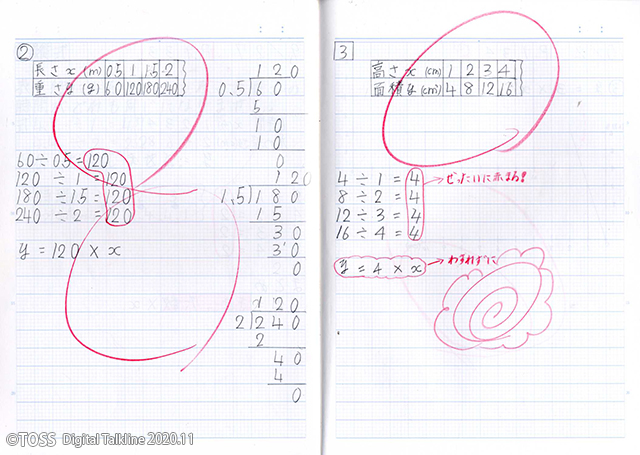 ②
長さ x (m) 0.5 1 1.5 2
重さ y (g) 60 120 180 240
60 ÷ 0.5 = 120
120 ÷ 1 = 120
180 ÷ 1.5 = 120
240 ÷ 2 = 120
y = 120 × x
120
0.5)60
5
10
10
0
120
1.5)180
15
30
30
0
120
2)240
2
40
4
0
3
高さ x (cm) 1 2 3 4
面積 y (cm²) 4 8 12 16
4 ÷ 1 = 4
8 ÷ 2 = 4
12 ÷ 3 = 4
16 ÷ 4 = 4
→ぜったいに赤まる!
y = 4 × x →わすれずに
©TOSS Digital Talkline 2020.11